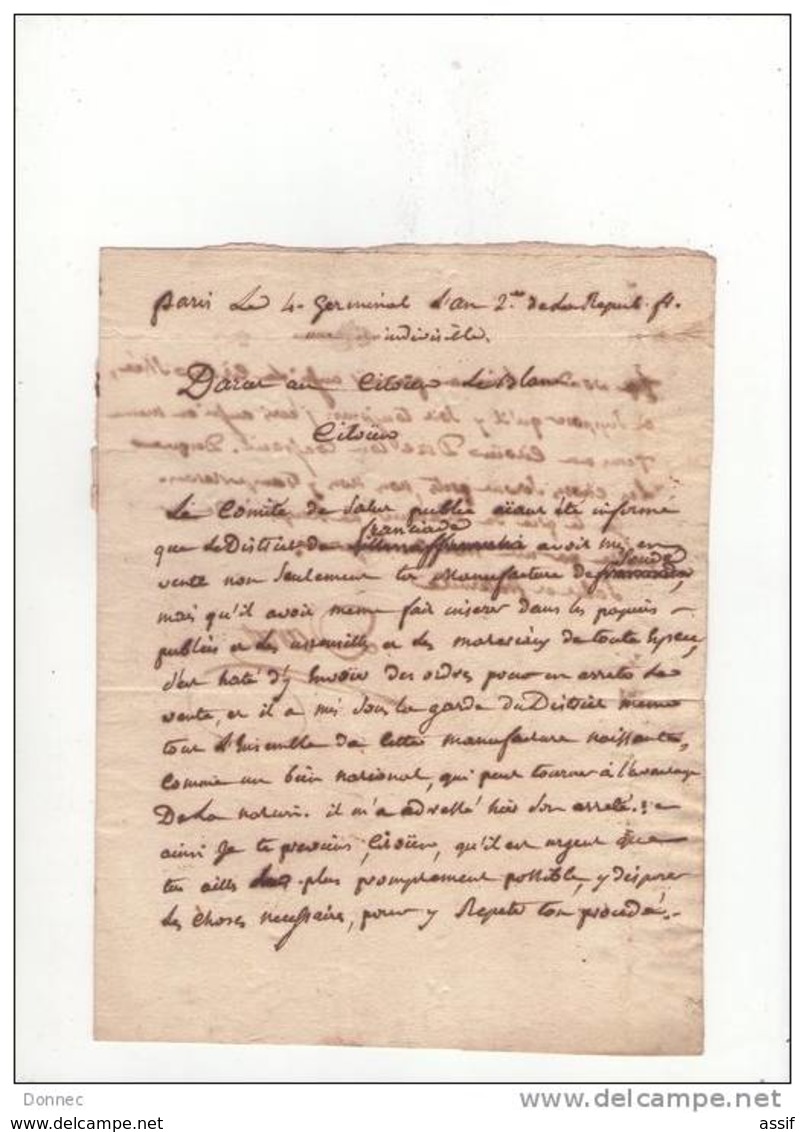 Paris Le 4. Germinal L'an 2.me de La Republ. fr.
indivisible.
Darcet au Citoïen Le Blanc
Citoïen
Le Comité de Salut public aïant été informé
franciade
que Le District de avoit mis en
Soude
vente non Seulement ta Manufacture de
mais qu'il avoit meme fait inserer dans les papiers
publics et des ustensilles et des materiaux de toute Espece,
s'est haté d'y Envoïer des ordres pour en arreter La
vente, et il a mis Sous La garde du District meme
tout L'Ensemble de Cette manufacture naissante,
Comme un bien national, qui peut tourner à L'avantage
De La nation. il m'a adressé hier Son arreté.
ainsi Je te previens, Citoïen, qu'il est urgent que
tu ailles plus promptement possible, y disposer
Les choses necessaires, pour y Repeter ton procedé.
Donnec
www.delcampe.net
assif